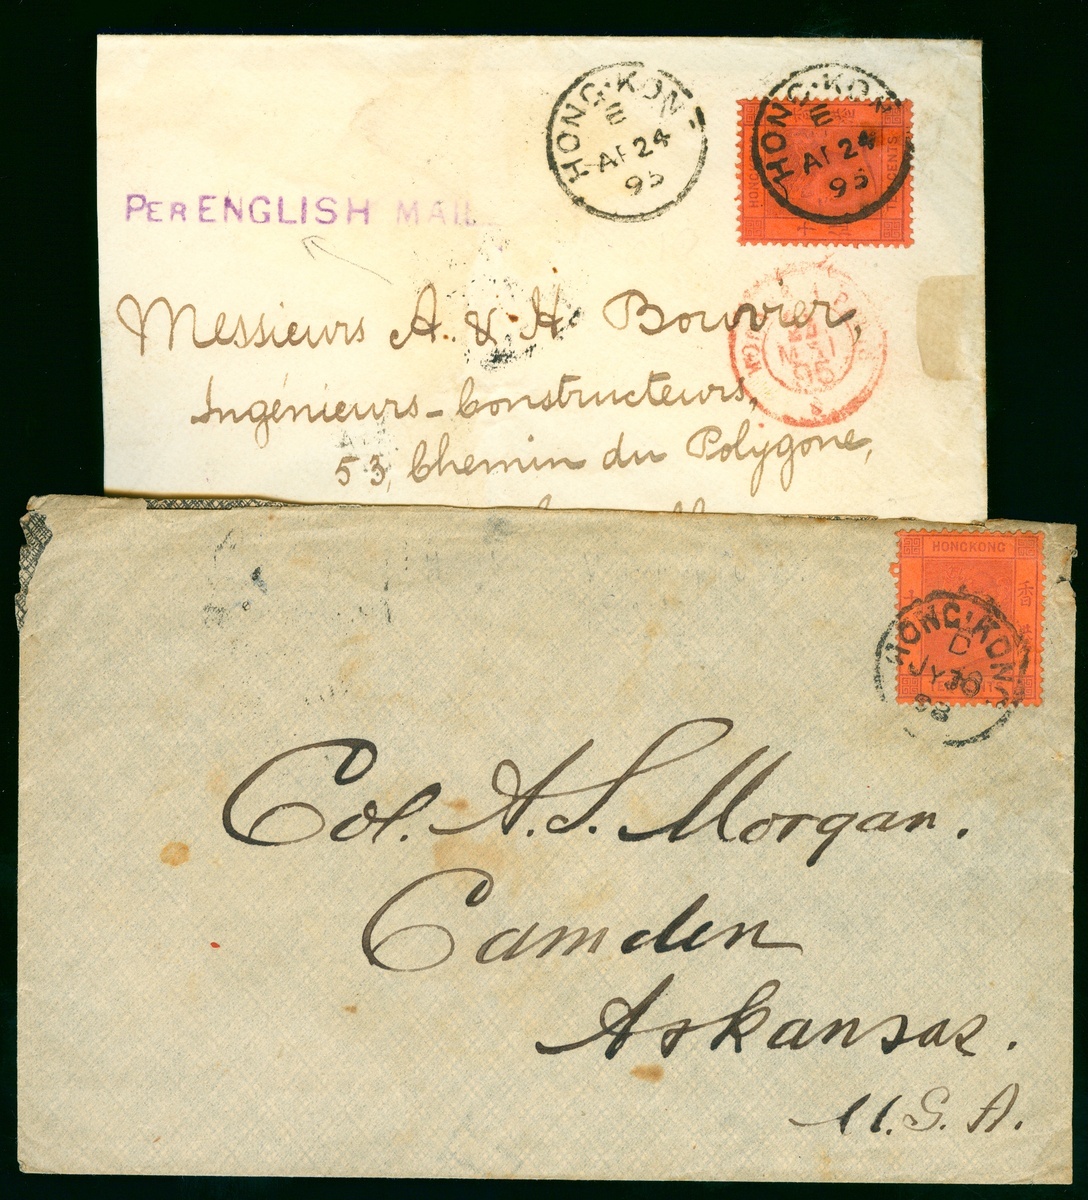 HONG·KON
E
AP 24
95
HONG·KON
E
AP 24
95
HONG
CENTS
PER ENGLISH MAIL
Messieurs A. & H. Bouvier,
Ingénieurs-Constructeurs,
53, Chemin du Polygone,
MAI
95
HONGKONG
香
HONG·KON
D
JY 30
98
Col. A. S. Morgan.
Camden
Arkansas.
U. S. A.